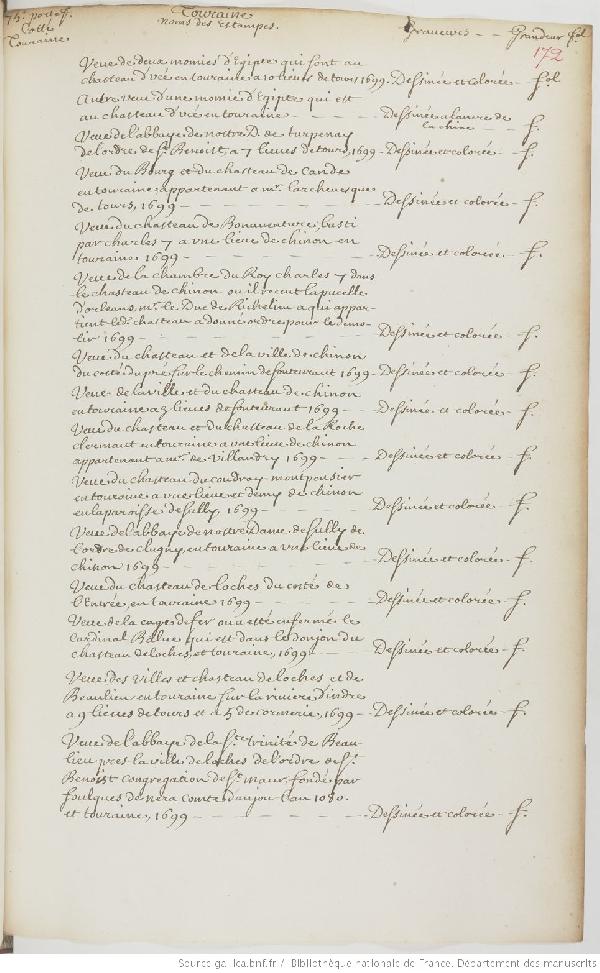 75. portef. Touraine Graveures -- Grandeur fol
Cotté noms des estampes.
Touraine 172
Veue de deux momies d'Egipte qui sont au
chasteau d'Vcé en touraine a 10 lieues de tours 1699. Dessinée et colorée - fol
Autre veue d'une momie d'Egipte qui est
au chasteau d'vcé en touraine - - - - Dessinée a l'ancre de
la chine - - f.
Veue de l'abbaye de nostre D. de turpenay
de l'ordre de St. Benoist, a 7 lieues de tours, 1699 - Dessinée et colorée. - f.
Veue du Bourg et du chasteau de Cande
en touraine, appartenant a mr. l'archevesque
de tours, 1699 - - - - - Dessinée et colorée - f.
Veue du chasteau de Bonaventure, basti
par charles 7 a vne lieue de chinon en
touraine, 1699 - - - - - Dessinée et colorée - f.
Veue de la chambre du Roy charles 7 dans
le chasteau de chinon ou il receut la pucelle
d'orleans, mr. le Duc de Richelieu a qui appar-
tient led. chasteau a donné ordre pour le demo-
lir 1699 - - - - - Dessinée et colorée - f.
Veue du chasteau et de la ville de chinon
du costé du pré sur le chemin de fontevraut 1699 - Dessinée et colorée - f.
Veue de la ville et du chasteau de chinon
en touraine a 3 lieues de fontevraut 1699 - - Dessinée et colorée - f.
Veue du chasteau et du chasteau de la Roche
clermaut en touraine a vne lieue de chinon
appartenant a mr. de Villandry 1699 - - - Dessinée et colorée - f.
Veue du chasteau du coudray montpensier
en touraine a vne lieue et demy de chinon
en la paroisse de suilly, 1699 - - - - Dessinée et colorée - f.
Veue de l'abbaye de nostre Dame de suilly de
l'ordre de clugny, en touraine a vne lieue de
chinon 1699 - - - - - Dessinée et colorée - f.
Veue du chasteau de loches du costé de
l'Entrée, en touraine 1699 - - - - Dessinée et colorée - f.
Veue de la cage de fer ou a esté enfermé le
cardinal Balue qui est dans le donjon du
chasteau de loches, et touraine, 1699 - - - Dessinée et colorée - f.
Veue des villes et chasteau de loches et de
Beaulieu en touraine sur la riviere d'indre
a 9 lieues de tours et a 5 de cormerie, 1699 - Dessinée et colorée - f.
Veue de l'abbaye de la Ste. trinité de Beau-
lieu pres la ville de loches de l'ordre de St.
Benoist congregation de St. maur fondé par
foulques de nera comte d'anjou l'an 1080.
et touraine, 1699 - - - - - Dessinée et colorée - f.
Source gallica.bnf.fr / Bibliothèque nationale de France. Département des manuscrits